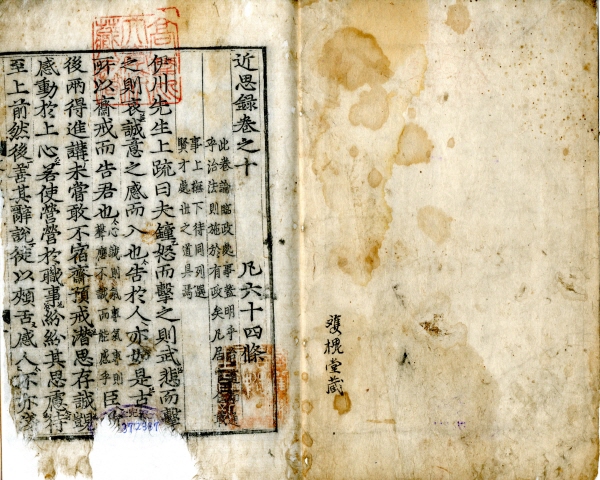 近思錄卷之十
凡六十四條
此卷論臨政處事蓋明乎
治法則施於有政矣凡居
事上撫下待同列選
賢才處世之道具焉
伊川先生上疏曰夫鐘怒而擊之則武悲而擊
之則哀誠意之感而入也告於人亦如是古
所以齋戒而告君也
心誠則氣專氣專則
聲應不誠而能感乎
臣
後兩得進講未嘗敢不宿齋預戒潛思存誠覬
感動於上心若使營營於職事紛紛其思慮待
至上前然後善其辭說徒以頰舌感人不亦
槐堂藏
372387